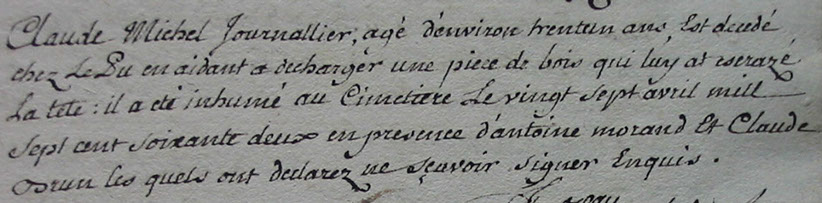 Claude Michel Journallier, agé d'environ trentun ans, Est decedé
chez Le Pu en aidant a decharger une piece de bois qui luy at escrazé
La tete : il a eté inhumé au Cimetiere Le vingt sept avril mill
Sept cent soixante deux en presence d'antoine morand Et Claude
Brun les quels ont declarez ne sçavoir signer Enquis.